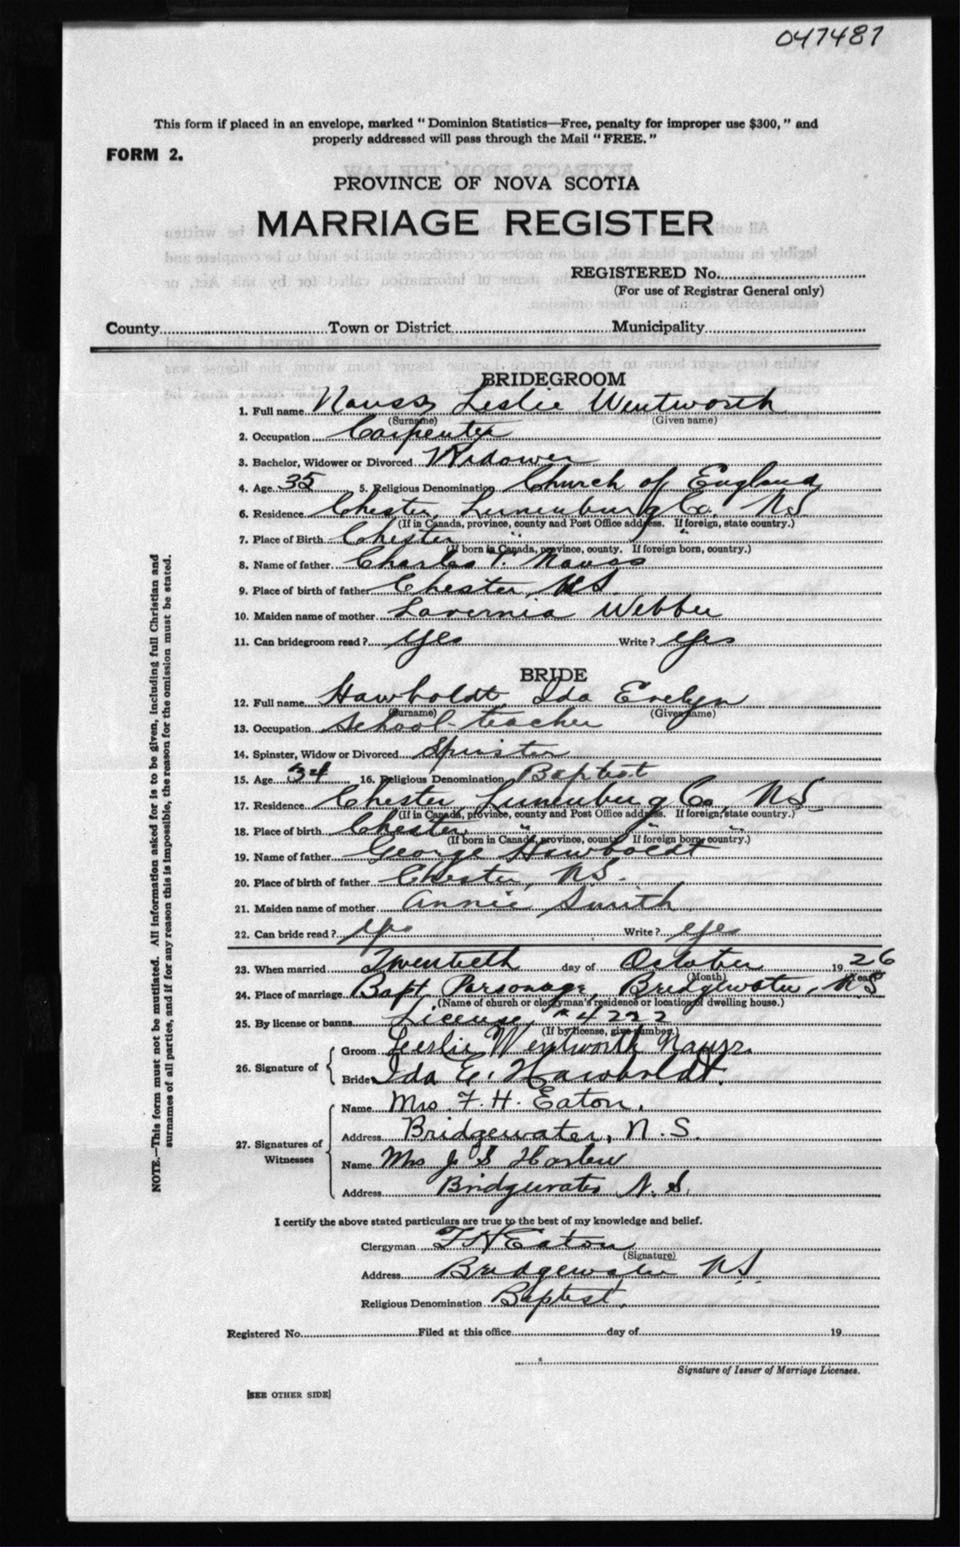 047487
This form if placed in an envelope, marked "Dominion Statistics—Free, penalty for improper use $300," and
properly addressed will pass through the Mail "FREE."
FORM 2.
PROVINCE OF NOVA SCOTIA
MARRIAGE REGISTER
REGISTERED No.
(For use of Registrar General only)
County Town or District Municipality
BRIDEGROOM
1. Full name Nauss, Leslie Wentworth
(Surname) (Given name)
2. Occupation Carpenter
3. Bachelor, Widower or Divorced Widower
4. Age 35 5. Religious Denomination Church of England
6. Residence Chester, Lunenburg Co. NS
(If in Canada, province, county and Post Office address. If foreign, state country.)
7. Place of Birth Chester " "
(If born in Canada, province, county. If foreign born, country.)
8. Name of father Charles T. Nauss
9. Place of birth of father Chester, N.S.
10. Maiden name of mother Lavernia Webber
11. Can bridegroom read? yes Write? yes
BRIDE
12. Full name Hawboldt Ida Evelyn
(Surname) (Given name)
13. Occupation School-teacher
14. Spinster, Widow or Divorced Spinster
15. Age 34 16. Religious Denomination Baptist
17. Residence Chester, Lunenburg Co, NS
(If in Canada, province, county and Post Office address. If foreign, state country.)
18. Place of birth Chester, " " "
(If born in Canada, province, county. If foreign born, country.)
19. Name of father George Hawboldt
20. Place of birth of father Chester, N.S.
21. Maiden name of mother Annie Smith
22. Can bride read? yes Write? yes
23. When married Twentieth day of October 1926
(Month) (Year)
24. Place of marriage Bapt Parsonage, Bridgewater, NS
(Name of church or clergyman's residence or location of dwelling house.)
25. By license or banns License, #4222
(If by license, give number.)
26. Signature of
Groom Leslie Wentworth Nauss.
Bride Ida E. Hawboldt.
27. Signatures of Witnesses
Name Mrs. F. H. Eaton.
Address Bridgewater, N.S.
Name Mrs J S
Address Bridgewater N.S.
I certify the above stated particulars are true to the best of my knowledge and belief.
Clergyman F H Eaton
(Signature)
Address Bridgewater NS.
Religious Denomination Baptist.
Registered No. Filed at this office day of 19
Signature of Issuer of Marriage Licenses.
[SEE OTHER SIDE]
NOTE.—This form must not be mutilated. All information asked for is to be given, including full Christian and
surnames of all parties, and if for any reason this is impossible, the reason for the omission must be stated.